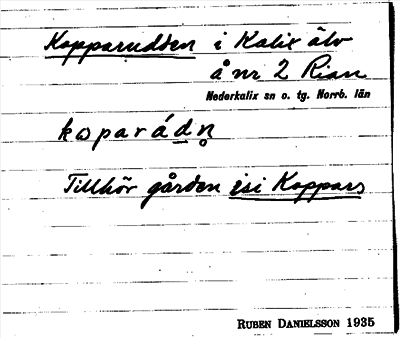 Kopparudden i Kalix älv
å nr 2 Rian
Nederkalix sn o. tg. Norrb. län
kɷparádn̥
Tillhör gården isi Koppars
RUBEN DANIELSSON 1935